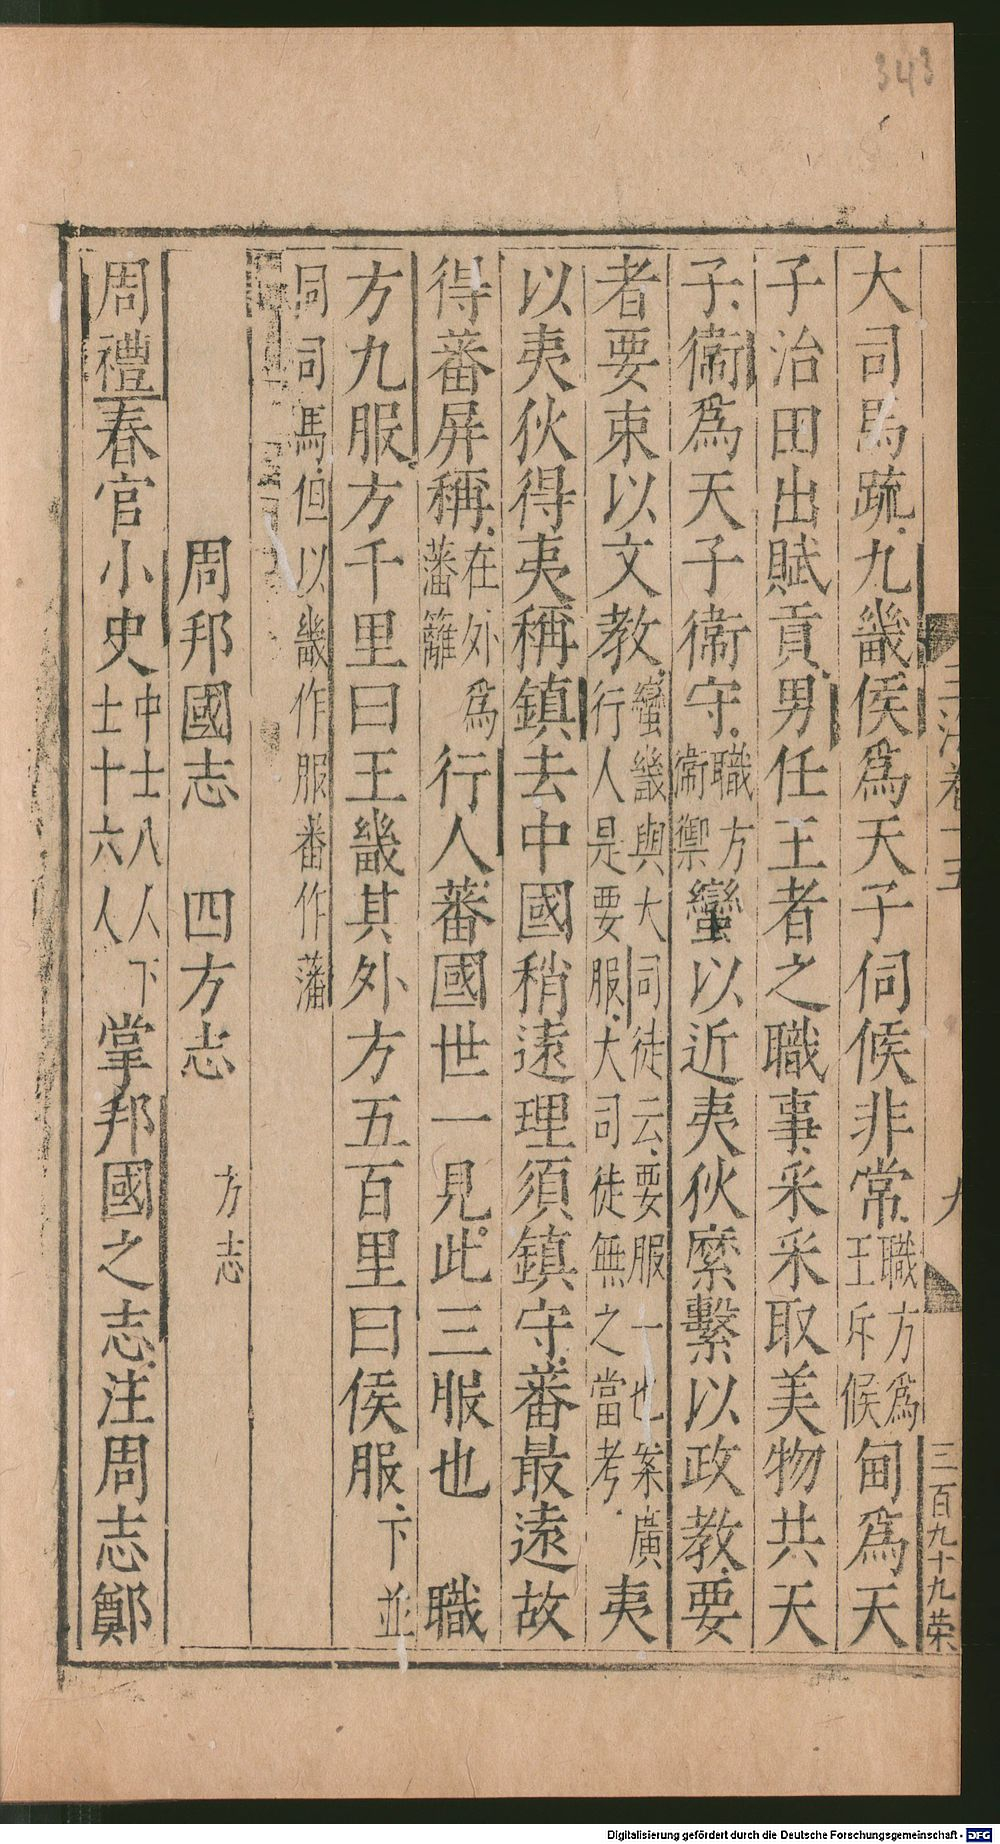 343
大司馬疏九畿侯爲天子伺候非常職方爲王斥候甸爲天
子治田出賦貢男任王者之職事采采取美物共天
子衞爲天子衞守職方衞禦蠻以近夷狄縻繫以政教要
者要束以文教蠻畿與大司徒云要服一也案廣行人是要服大司徒無之當考夷
以夷狄得夷稱鎮去中國稍遠理須鎮守蕃最遠故
得蕃屏稱在外爲藩籬行人蕃國世一見此三服也 職
方九服方千里曰王畿其外方五百里曰侯服下並
同司馬但以畿作服蕃作藩
周邦國志 四方志 方志
周禮春官小史中士八人下士十六人掌邦國之志注周志鄭
九
三百九十九荣
Digitalisierung gefördert durch die Deutsche Forschungsgemeinschaft - DFG